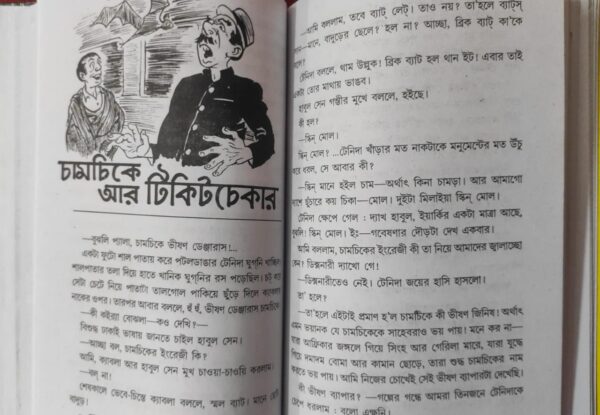 চামচিকে
আর টিকিটচেকার
—বুঝলি প্যালা, চামচিকে ভীষণ ডেঞ্জারাস!...
একটা ফুটো শাল পাতায় করে পটলডাঙার টেনিদা ঘুগ্‌নি খাচ্ছিল।
শালপাতার তলা দিয়ে হাতে খানিক ঘুগ্‌নির রস পড়েছিল। চট্ করে
সেটা চেটে নিয়ে পাতাটা তালগোল পাকিয়ে ছুঁড়ে দিলে ক্যাবলার
নাকের ওপর। তারপর আবার বললে, হুঁ হুঁ, ভীষণ ডেঞ্জারাস চামচিকে
—কী কইর‍্যা বোঝলা—কও দেখি?—
বিশুদ্ধ ঢাকাই ভাষায় জানতে চাইল হাবুল সেন।
—আচ্ছা বল, চামচিকের ইংরেজী কি?
আমি, ক্যাবলা আর হাবুল সেন মুখ চাওয়া-চাওয়ি করলাম।
—বল্ না!
শেষকালে ভেবে-চিন্তে ক্যাবলা বললে, স্মল ব্যাট। মানে ছোট
বাদুড়।
—আমি বললাম, তবে ব্যাট্ লেট্। তাও নয়? তা'হলে ব্যাট্‌স্
—মানে, বাদুড়ের ছেলে? হল না? আচ্ছা, ব্রিক ব্যাট্ কা'কে
টেনিদা বললে, থাম উল্লুক! ব্রিক ব্যাট হল থান ইট। এবার তাই
একটা তোর মাথায় ভাঙব।
হাবুল সেন গম্ভীর মুখে বললে, হইছে।
কী হল?
—স্কিন্ মোল।
—স্কিন্ মোল? ...টেনিদা খাঁড়ার মত নাকটাকে মনুমেন্টের মত উঁচু
করে ধরল, সে আবার কী?
—স্কিন্ মানে হইল চাম—অর্থাৎ কিনা চামড়া। আর আমাগো
দ্যাশে ছুঁচারে কয় চিকা—মোল। দুইটা মিলাইয়া স্কিন্ মোল।
টেনিদা ক্ষেপে গেল : দ্যাখ হাবুল, ইয়ার্কির একটা মাত্রা আছে,
বুঝলি? স্কিন্ মোল। ইঃ—গবেষণার দৌড়টা দেখ একবার।
আমি বললাম, চামচিকের ইংরেজী কী তা নিয়ে আমাদের জ্বালাচ্ছো
কেন? ডিক্সনারী দ্যাখো গে!
—ডিক্সনারীতেও নেই। টেনিদা জয়ের হাসি হাসলো।
তা' হলে?
—তা'হলে এইটাই প্রমাণ হ'ল চামচিকে কী ভীষণ জিনিষ! অর্থাৎ
এমন ভয়ানক যে চামচিকেকে সাহেবরাও ভয় পায়। মনে কর না—
যারা আফ্রিকার জঙ্গলে গিয়ে সিংহ আর গেরিলা মারে, যারা যুদ্ধে
গিয়ে দমাদম বোমা আর কামান ছোড়ে, তারা শুদ্ধ চামচিকের নাম
করতে ভয় পায়। আমি নিজের চোখেই সেই ভীষণ ব্যাপারটা দেখেছি।
কী ভীষণ ব্যাপার? —গল্পের গন্ধে আমরা তিনজনে টেনিদাকে
চেপে ধরলাম : বলো এক্ষুনি।